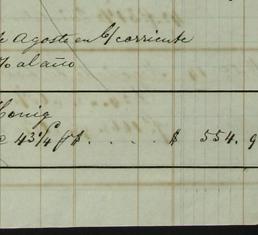 de Agosto en b/ corriente
% al año
Honig
c 43 3/4 ft . . . . . $ 554. 9